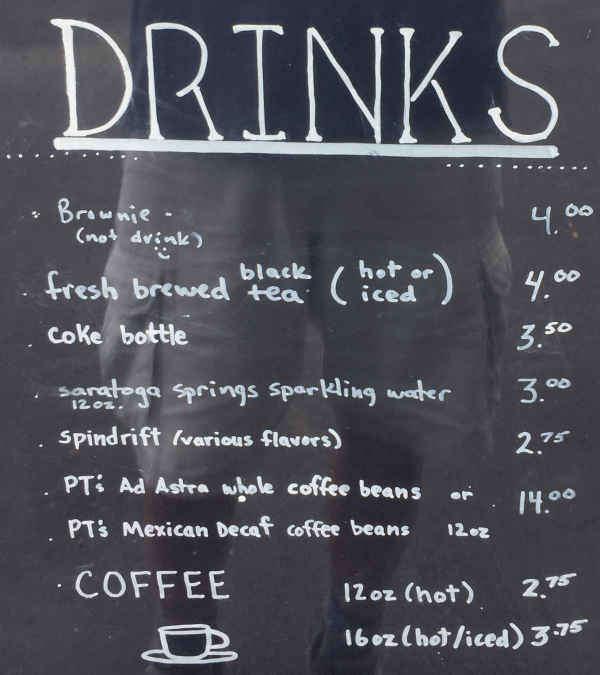 DRINKS
Brownie - 4.00
(not drink)
fresh brewed black tea (hot or iced) 4.00
coke bottle 3.50
saratoga springs sparkling water 3.00
12oz.
spindrift (various flavors) 2.75
PT's Ad Astra whole coffee beans or 14.00
PT's Mexican Decaf coffee beans 12oz
COFFEE 12oz (hot) 2.75
16oz (hot/iced) 3.75